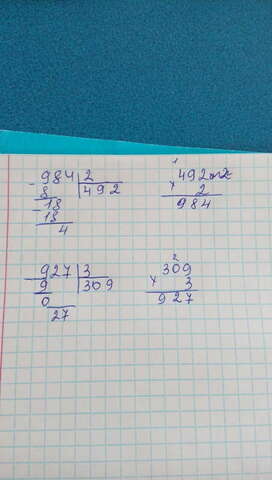 - 984 | 2
8 | 492
- 18
18
4
492
× 2
984
- 927 | 3
9 | 309
0
27
2
309
× 3
927